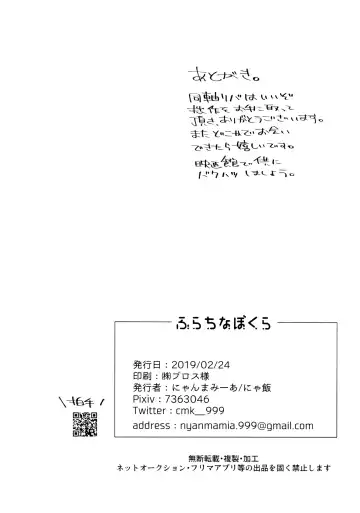 あとがき。
同軸リバはいいぞ
拙作をお手に取って
頂き、ありがとうございます。
またどこかでお会い
できたら嬉しいです。
映画館で供に
バクハツしましょう。
ふらちなぼくら
発行日：2019/02/24
印刷：㈱ブロス様
発行者：にゃんまみーあ/にゃ飯
Pixiv：7363046
Twitter：cmk__999
address：nyanmamia.999@gmail.com
拍手
無断転載・複製・加工
ネットオークション・フリマアプリ等の出品を固く禁止します